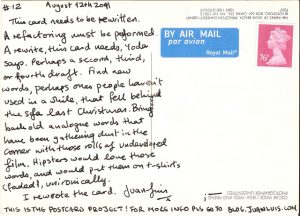 #12 August 12th 2011
This card needs to be rewritten.
A refactoring must be performed.
A rewrite, this card needs, Yoda
says. Perhaps a second, third,
or fourth draft. Find new
words, perhaps ones people haven't
used in a while, that fell behind
the sofa last Christmas. Bring
back old analogue words that
have been gathering dust in the
corner with those rolls of undeveloped
film. Hipsters would love those
words, and would put them on t-shirts
(faded), unironically.
I rewrote the card. Juanluis
THIS IS THE POSTCARD PROJECT! FOR MORE INFO PLS GO TO BLOG.JUANLUIS.COM
BY AIR MAIL
par avion
Royal Mail
76P